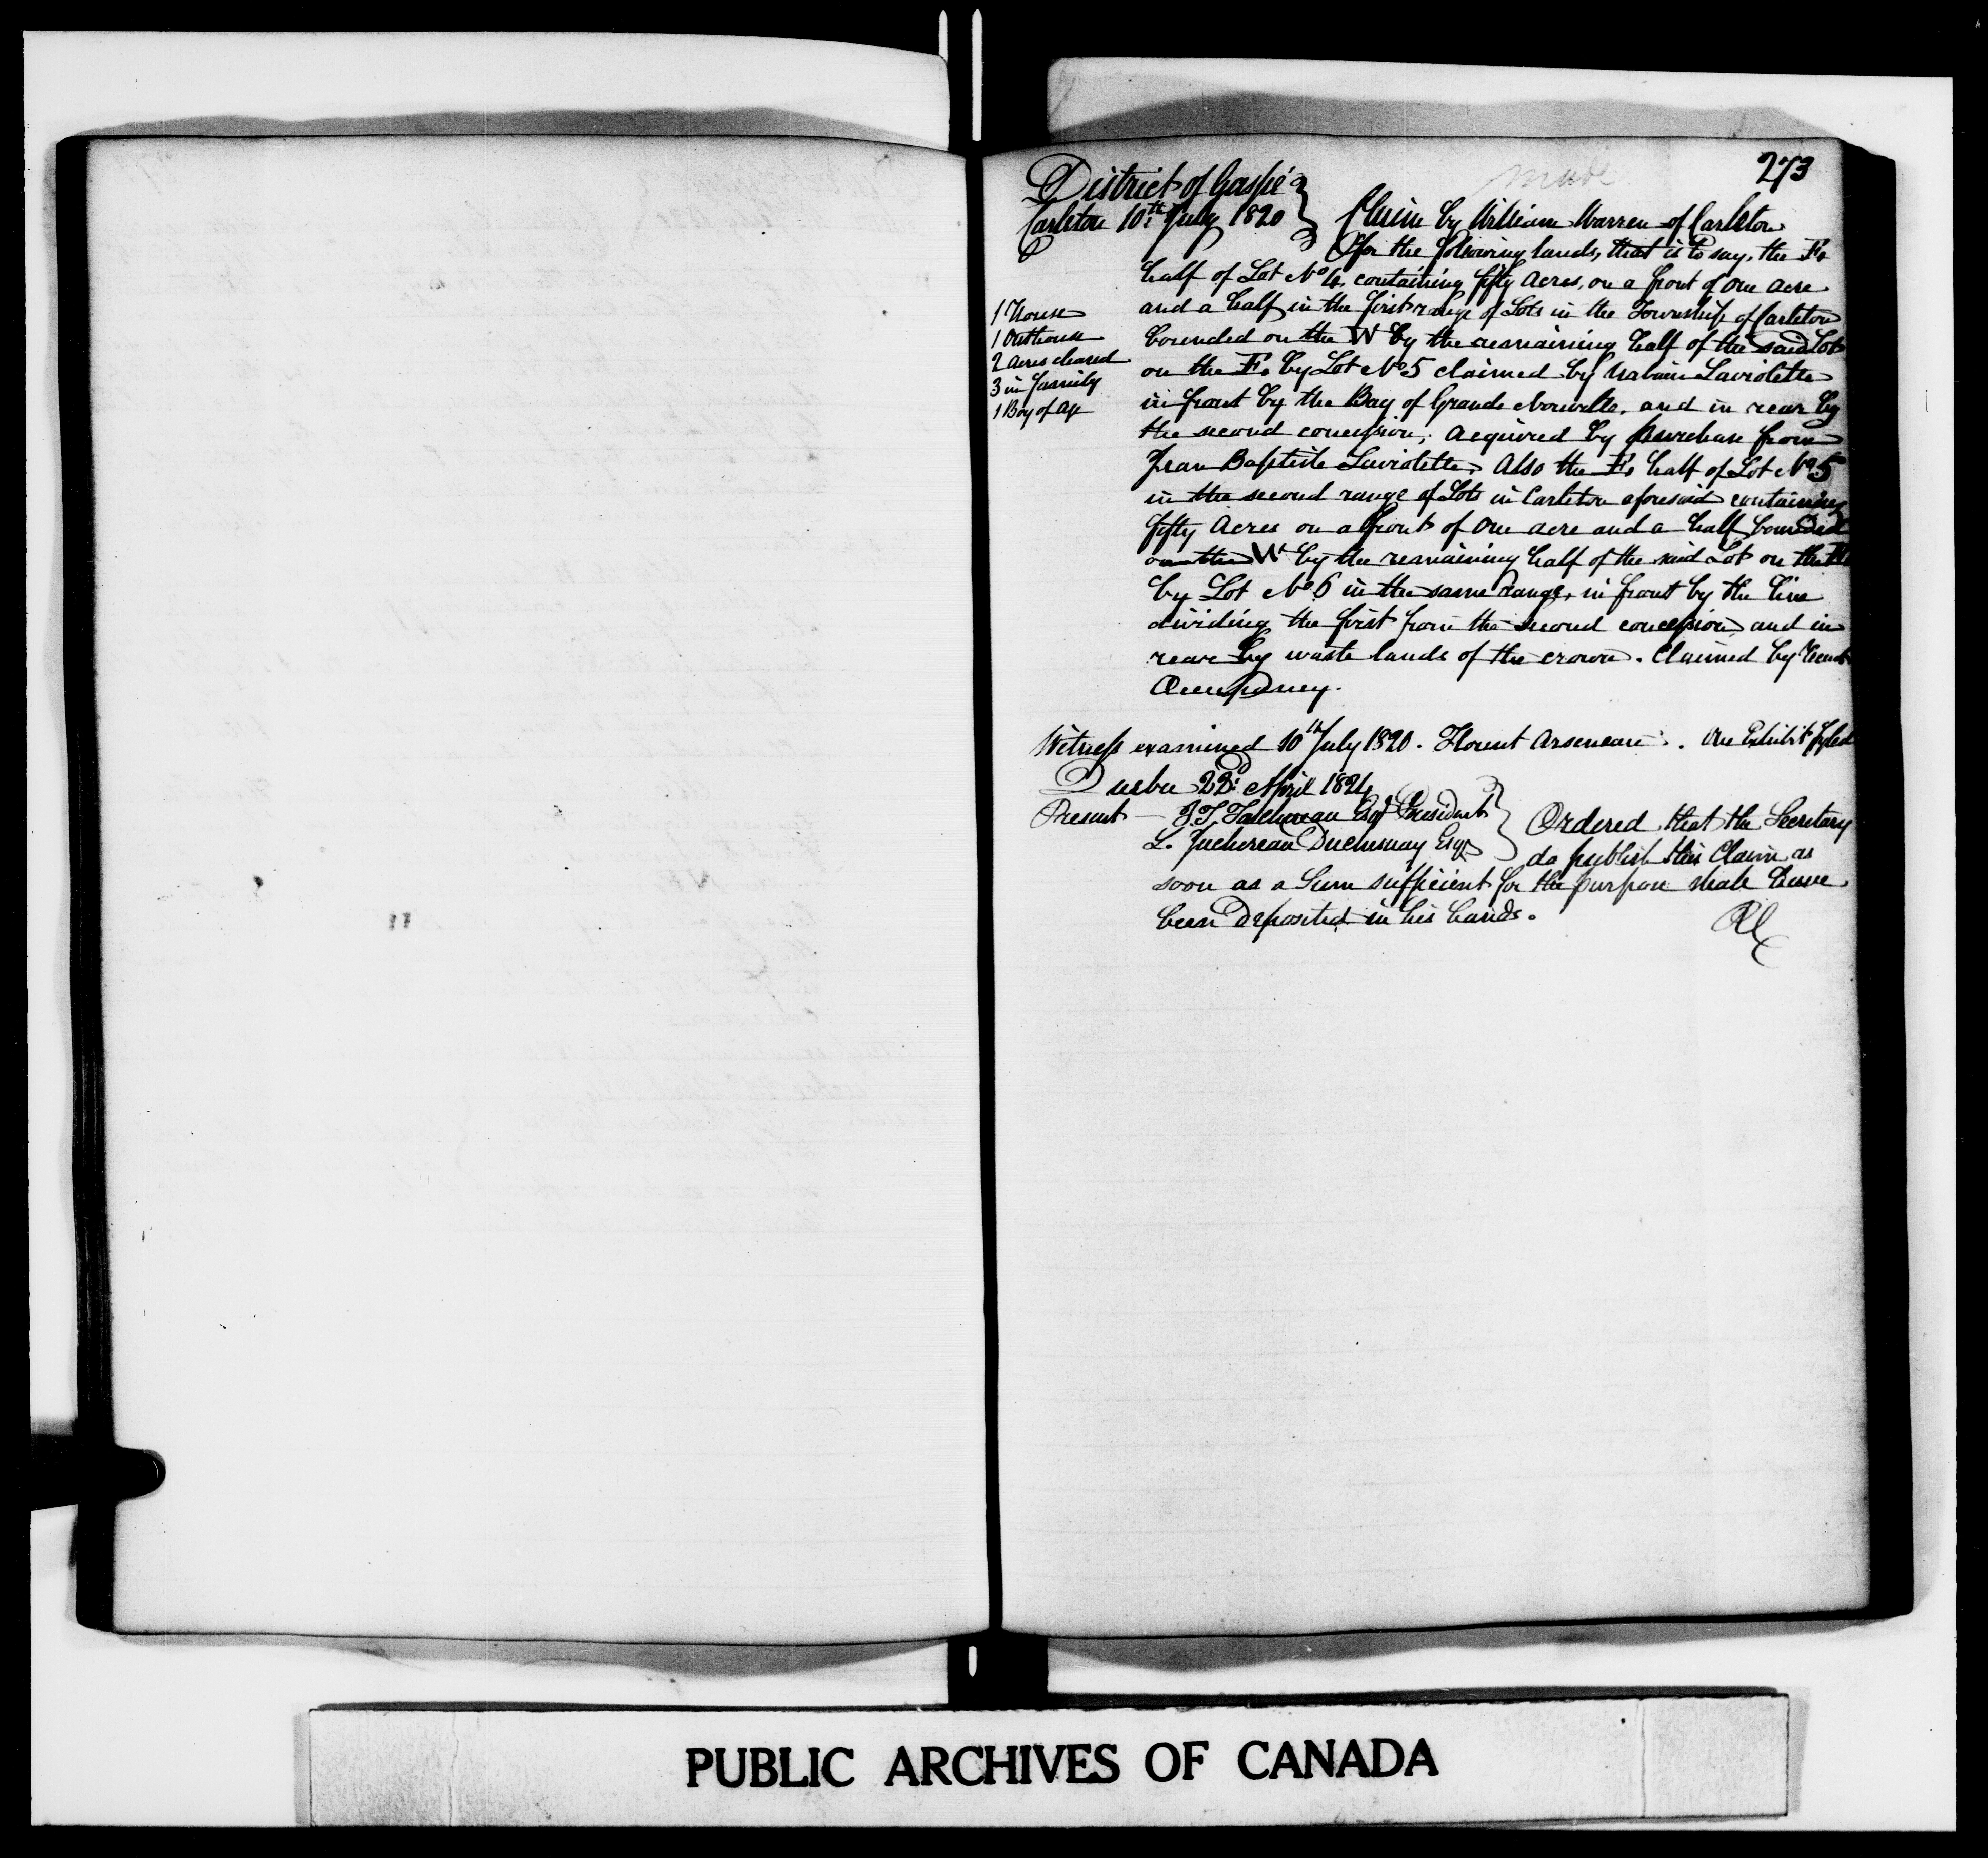 273
made
District of Gaspé
Carleton 10th July 1820 } Claim by William Warren of Carleton
for the following lands, that is to say, the E.
half of Lot No 4, containing fifty Acres, on a front of one acre
and a half in the first range of Lots in the Township of Carleton
bounded on the W by the remaining half of the said Lot
on the E. by Lot No 5 claimed by Laviolette
in front by the Bay of Grande Nouvelle, and in rear by
the second concession; acquired by purchase from
Jean Baptiste Laviolette. Also the E. half of Lot No 5
in the second range of Lots in Carleton aforesaid containing
fifty Acres on a front of one acre and a half bounded
on the W by the remaining half of the said Lot on the E
by Lot No 6 in the same range, in front by the line
dividing the first from the second concession and in
rear by waste lands of the crown. Claimed by
Occupancy.
1 House
1 Outhouse
2 Acres cleared
3 in family
1 Boy of age
Witness examined 10th July 1820. Florent Arseneau. An Exhibit fyled
Quebec 22d April 1824
Present — J.T. Taschereau Esqr President
L. Juchereau Duchesnay Esqr } Ordered that the Secretary
do publish this Claim as
soon as a Sum sufficient for the purpose shall have
been deposited in his hands.
PUBLIC ARCHIVES OF CANADA